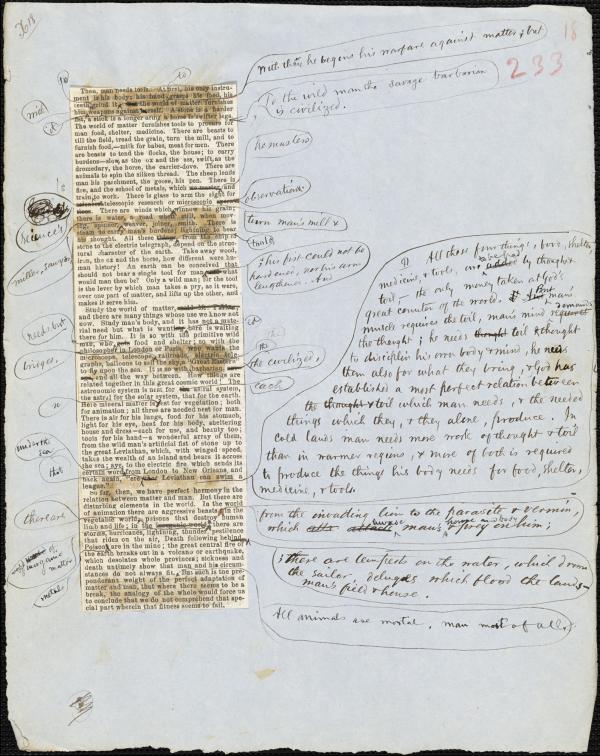 18
233
with them he begins his warfare against matter; but
To the wild man the savage barbarian
is civilized.
he masters
observation
turn man's mill &
this fist could not be
hardened, nor his arm
lengthened. And
the civilized,
each
to
to
with
science's
needs but
bridges,
under the
sea
that
there are
inorganic
matter
metals
Then, man needs tools. At first, his only instru-
ment is his body; his hand grasps his food, his
teeth grind it; the world of matter furnishes
him weapons against itself. A stone is a harder
fist, a stick is a longer arm; a horse is swifter legs.
The world of matter furnishes tools to procure for
man food, shelter, medicine. There are beasts to
till the field, tread the grain, turn the mill, and to
furnish food,—milk for babes, meat for men. There
are beasts to tend the flocks, the house; to carry
burdens—slow, as the ox and the ass, swift, as the
dromedary, the horse, the carrier-dove. There are
animals to spin the silken thread. The sheep lends
man his parchment, the goose, his pen. There is
fire, and the school of metals, which and
train to work. There is glass to arm the sight for
telescopic research or microscopic
There are winds which winnow his grain;
there is water,
spinner, weaver, joiner, smith. There is
lightning to bear
his thought. All these from the ship of
stone to the electric telegraph, depend on the struc-
tural character of the earth. Take away wood,
iron, the ox and the horse, how different were hu-
man history! An earth can be conceived that
should not bear a single tool for man; what
would man then be? Only a wild man; for the tool
is the lever by which man takes a pry, as it were,
over one part of matter, and lifts up the other, and
makes it serve him.
Study the world of matter,
and there are many things whose use we know not
now. Study man's body, and it has not a mate-
rial need but what is here is waiting
there for him. It is so with the primitive wild
man, who food and shelter; so with the
philosopher in London or Paris, who wants the
microscope, telescope, railroads, electric tele-
graphs, balloons to sail the sky,
to fly upon the sea. It is so
and all the way between. How things are
related together in this great cosmic world! The
astronomic system is nest for astral system,
the astral for the solar system, that for the earth.
Here mineral matter is nest for vegetation; both
for animation; all three are needed nest for man.
There is air for his lungs, food for his stomach,
light for his eye, heat for his body, sheltering
house and dress—each for use, and beauty too;
tools for his hand—a wonderful array of them,
from the wild man's artificial fist of stone up to
the great Leviathan, which, with winged speed,
takes the wealth of an island and bears it across
the sea; aye, to the electric fire, which sends its
certain word from London to New Orleans, and
back again, "ere the Leviathan can swim a
league."
So far, then, we have perfect harmony in the
relation between matter and man. But there are
disturbing elements in the world. In the world
of animation there are aggressive beasts; in the
vegetable world, poisons that destroy human
limb and life; in the there are
storms, hurricanes, lightning, thunder, pestilence
that rides on the air, Death following behind.
Poisons are in the mine; the great central fire of
the earth breaks out in a volcano or earthquake,
which desolates whole provinces; sickness and
death untimely show that man and his circum-
stances do not always fit. But such is the pre-
ponderant weight of the perfect adaptation of
matter and man, that where there seems to be a
break, the analogy of the whole would force us
to conclude that we do not comprehend that spe-
cial part wherein that fitness seems to fail.
All these four things, food, shelter
medicine, & tools, are by thought
toil,—the only money taken at God's
great counter of the world. But man's
muscle requires the toil, man's mind
the thought; he needs toil & thought
to disciplin his own body & mind, he needs
them also for what they bring, & God has
established a most perfect relation between
the thought & toil which man needs, & the needed
things which they, & they alone, produce. In
cold lands man needs more work of thought & toil
than in warmer regions, & more of both is required
to produce the things his body needs for food, shelter,
medicine, & tools.
from the invading lion to the parasite & vermin,
which man's & prey on him;
; there are tempests on the water, which drown
the sailor, deluges which flood the lands-
man's field & house.
All animals are mortal, man most of all.